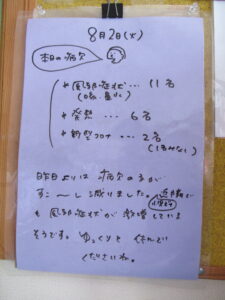 8月2日(火)
本日の病欠
・風邪症状…11名
(咳・鼻汁)
・発熱…6名
・新型コロナ…2名
昨日よりは病欠の方が
すこ〜し減りました。近隣で
も風邪症状が激増している
そうです。ゆっくりと休んで
くださいね。